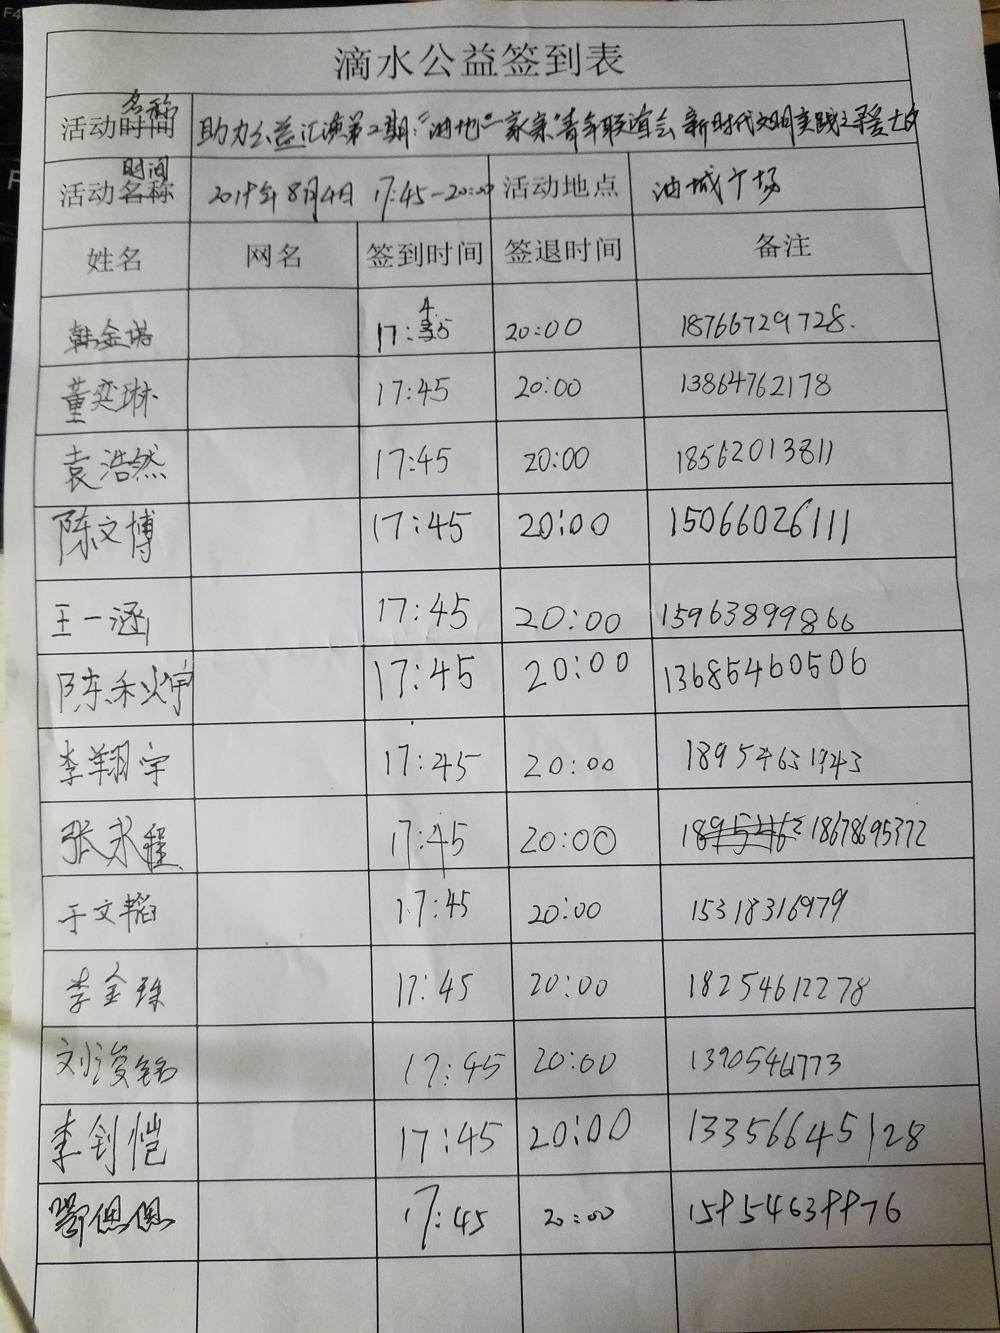 滴水公益签到表
名称
活动时间 助力公益汇演第二期:"油地一家亲"青年联谊会 新时代文明实践
时间
活动名称 2019年8月4日 17:45-20:00 活动地点 油城广场
姓名 网名 签到时间 签退时间 备注
韩金诺 17:45 20:00 18766729728.
董奕琳 17:45 20:00 13864762178
袁浩然 17:45 20:00 18562013811
陈文博 17:45 20:00 15066026111
王一涵 17:45 20:00 15963899866
陈禾火宇 17:45 20:00 13685460506
李翔宇 17:45 20:00 18954631943
张永程 17:45 20:00 18678695372
于文韬 17:45 20:00 15318316979
李金珠 17:45 20:00 18254612278
刘浚铭 17:45 20:00 1390546773
李钊恺 17:45 20:00 13356645128
17:45 20:00 15954639976